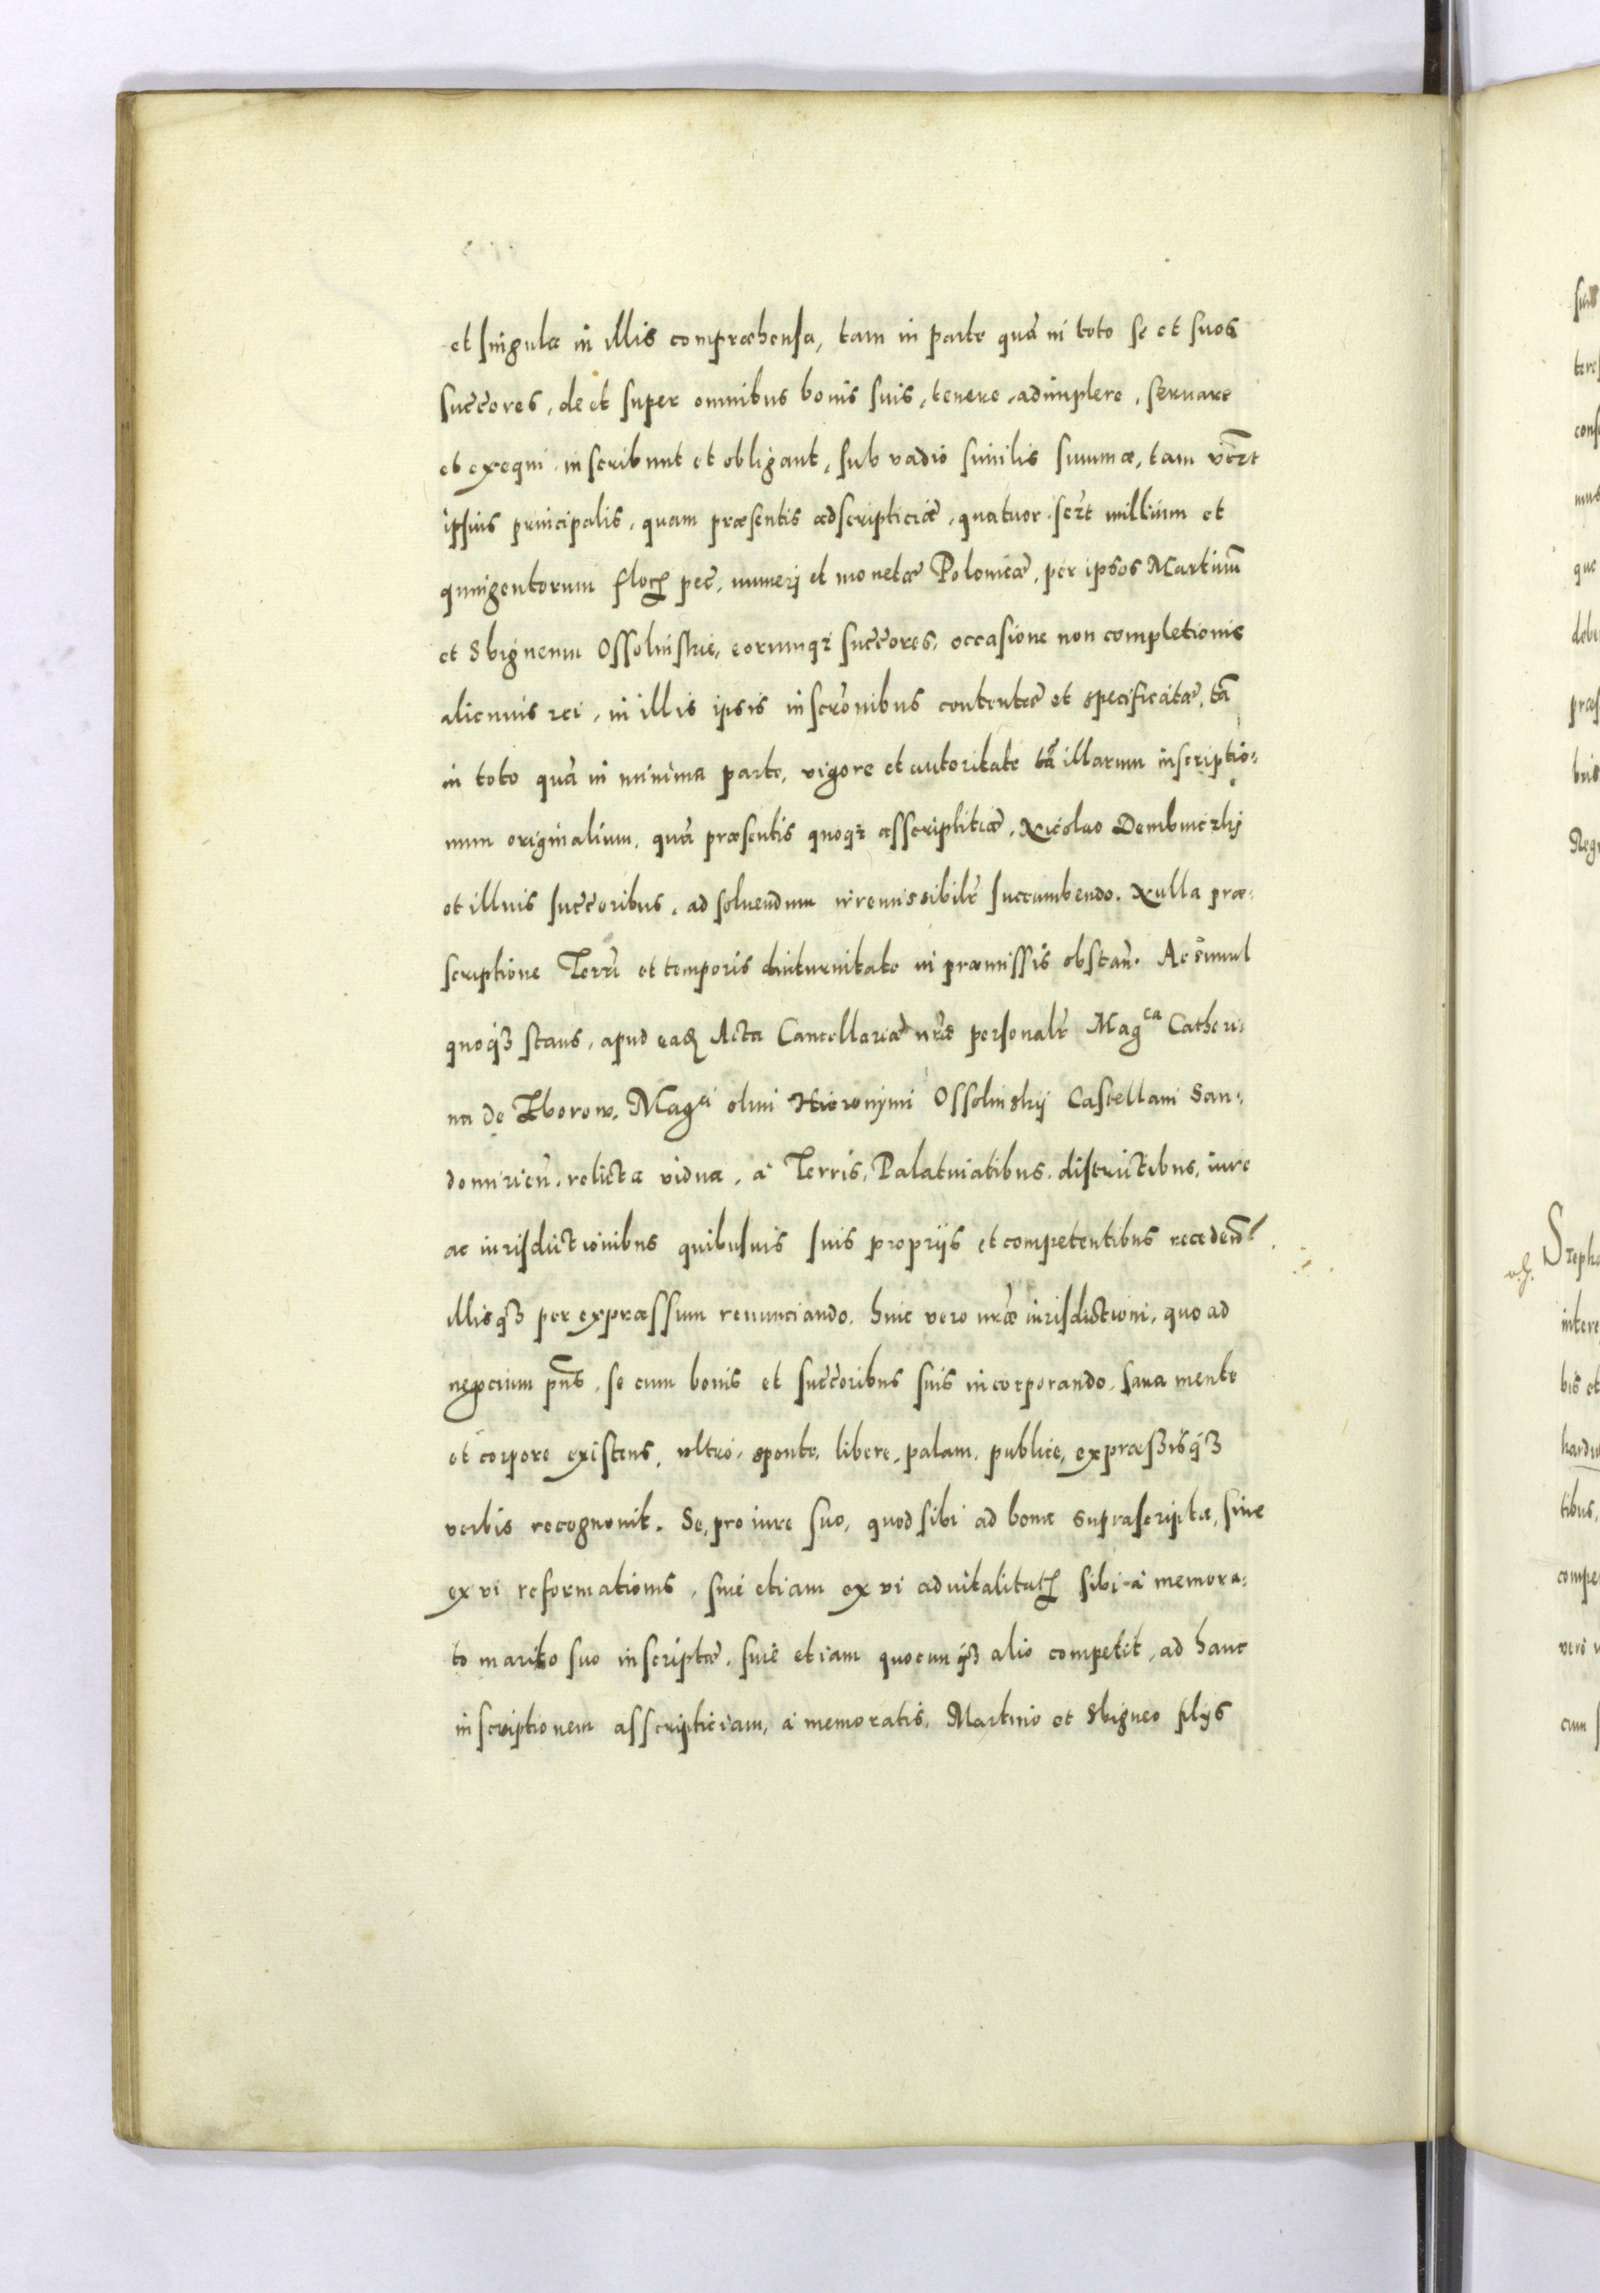 et singula in illis compræhensa, tam in parte quā in toto se et suos
succōres, de et super omnibus bonis suis, tenere, adimplere, seruare
et exequi inscribunt et obligant, sub vadio similis summæ, tam
ipsius principalis, quam præsentis adscripticiæ, quatuor millium et
quingentorum pec̄, numeri et monetæ Polonicæ, per ipsos Martinū
et Sbigneum Ossolinskie, eorumq; succōres, occasione non completionis
alicuius rei, in illis ipsis inscrōnibus contentæ et specificatæ, tā
in toto quā in minima parte, vigore et autoritate tā illarum inscriptio-
num originalium, quā præsentis quoq; asscriptitiæ, Nicolao Dembinczkj
et illius succōribus, ad soluendum irremissibilr̄ succumbendo. Nulla præ-
scriptione Terrī et temporis diuturnitate in præmissis obstan̄. Ac simul
quoq; stans, apud eaȝ Acta Cancellariæ nr̄æ personalr̄ Mag^ca Catheri-
na de Zborow, Mag^ci olim Hieronymi Ossolinskij Castellani San-
domirien̄. relicta vidua, a Terris, Palatinatibus, districtibus, iure
ac iurisdictionibus quibusuis suis propriis et competentibus receden̄
illisq; per expræssum renunciando, huic vero nr̄æ iurisdictioni, quo ad
negocium pn̄s, se cum bonis et succōribus suis incorporando, sana mente
et corpore existens, ultrò, sponte, libere, palam, publice, expræssisq;
verbis recognouit. Se, pro iure suo, quod sibi ad bona suprascripta, siue
ex vi reformationis, siue etiam ex vi aduitalitatꝭ sibi à memora-
to marito suo inscriptæ, siue etiam quocunq; alio competit, ad hanc
inscriptionem asscripticiam, à memoratis, Martino et Sbigneo filijs